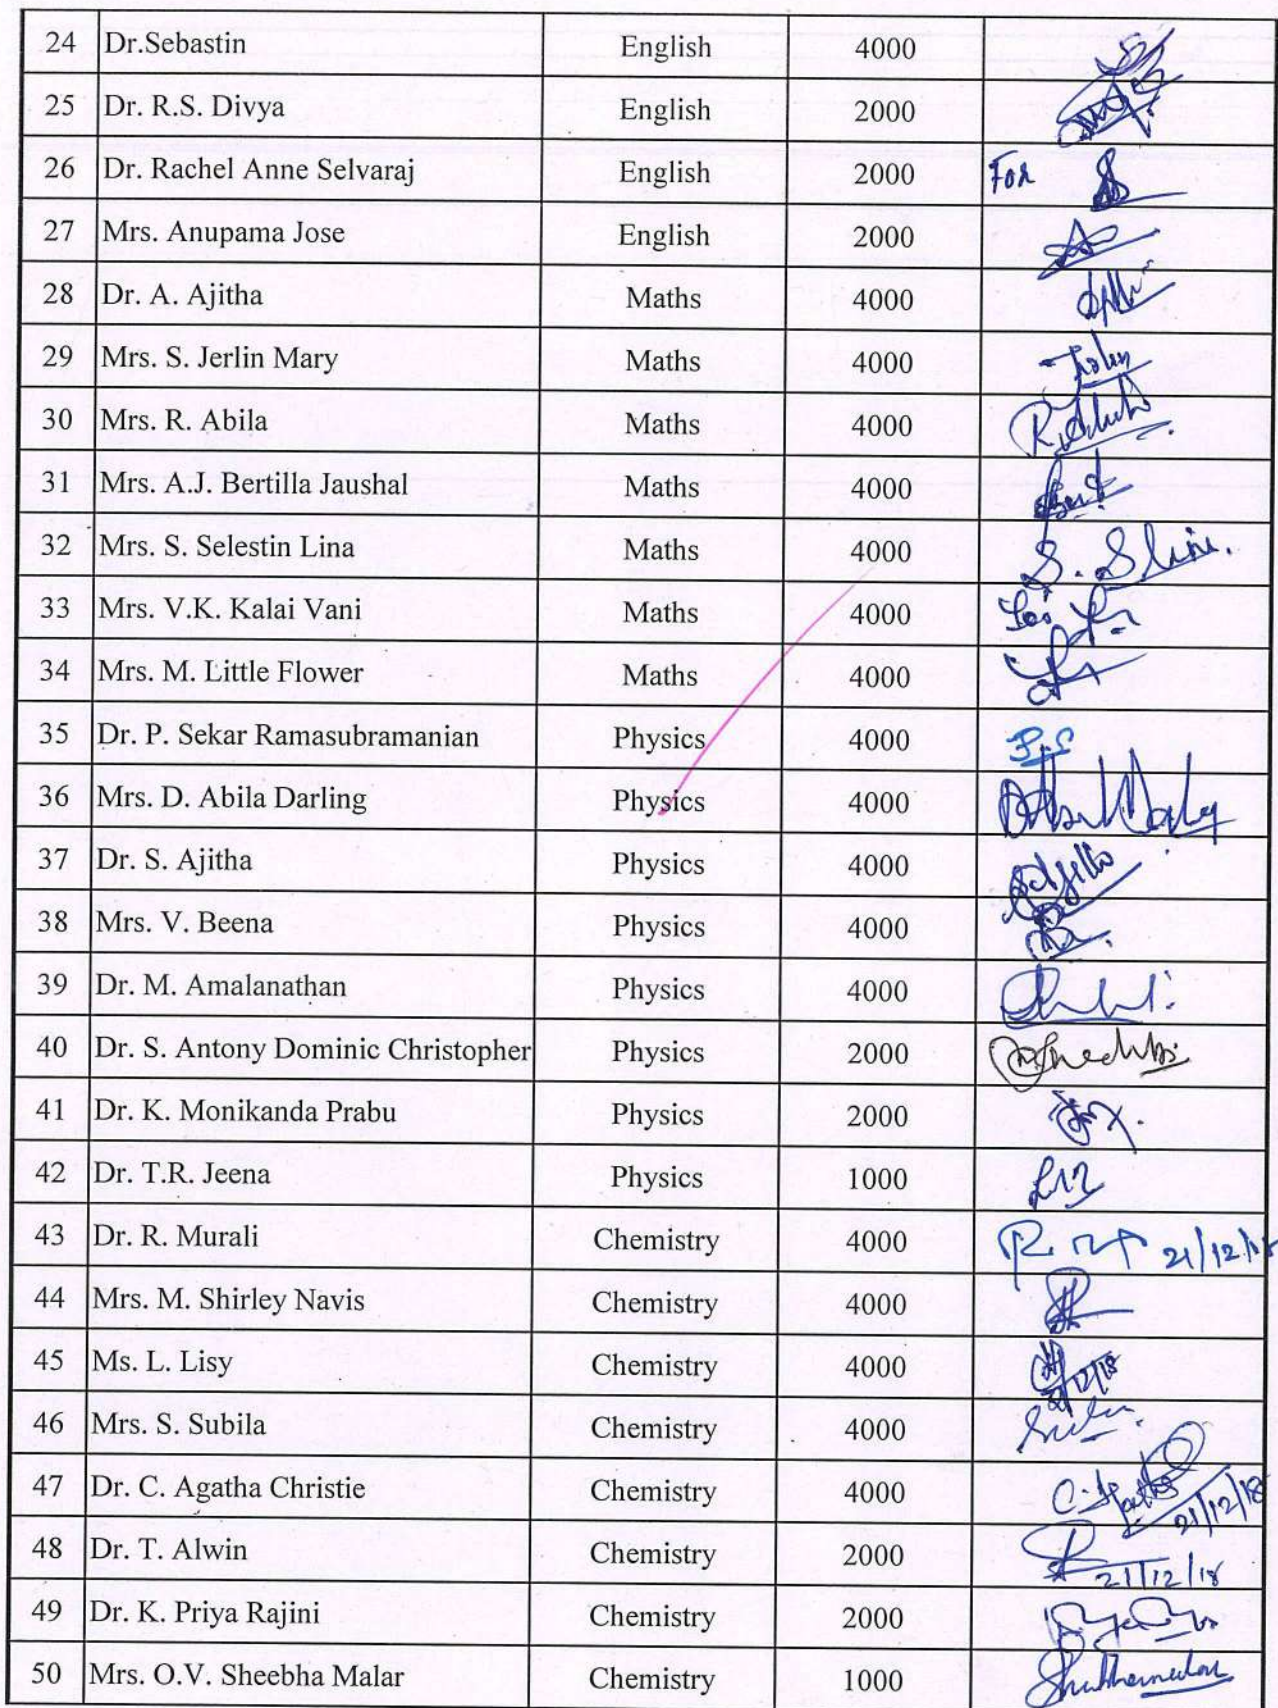 24 Dr.Sebastin English 4000
25 Dr. R.S. Divya English 2000
26 Dr. Rachel Anne Selvaraj English 2000 For
27 Mrs. Anupama Jose English 2000
28 Dr. A. Ajitha Maths 4000
29 Mrs. S. Jerlin Mary Maths 4000
30 Mrs. R. Abila Maths 4000
31 Mrs. A.J. Bertilla Jaushal Maths 4000
32 Mrs. S. Selestin Lina Maths 4000
33 Mrs. V.K. Kalai Vani Maths 4000
34 Mrs. M. Little Flower Maths 4000
35 Dr. P. Sekar Ramasubramanian Physics 4000
36 Mrs. D. Abila Darling Physics 4000
37 Dr. S. Ajitha Physics 4000
38 Mrs. V. Beena Physics 4000
39 Dr. M. Amalanathan Physics 4000
40 Dr. S. Antony Dominic Christopher Physics 2000
41 Dr. K. Monikanda Prabu Physics 2000
42 Dr. T.R. Jeena Physics 1000
43 Dr. R. Murali Chemistry 4000 21/12/18
44 Mrs. M. Shirley Navis Chemistry 4000
45 Ms. L. Lisy Chemistry 4000
46 Mrs. S. Subila Chemistry 4000
47 Dr. C. Agatha Christie Chemistry 4000 21/12/18
48 Dr. T. Alwin Chemistry 2000 21/12/18
49 Dr. K. Priya Rajini Chemistry 2000
50 Mrs. O.V. Sheebha Malar Chemistry 1000